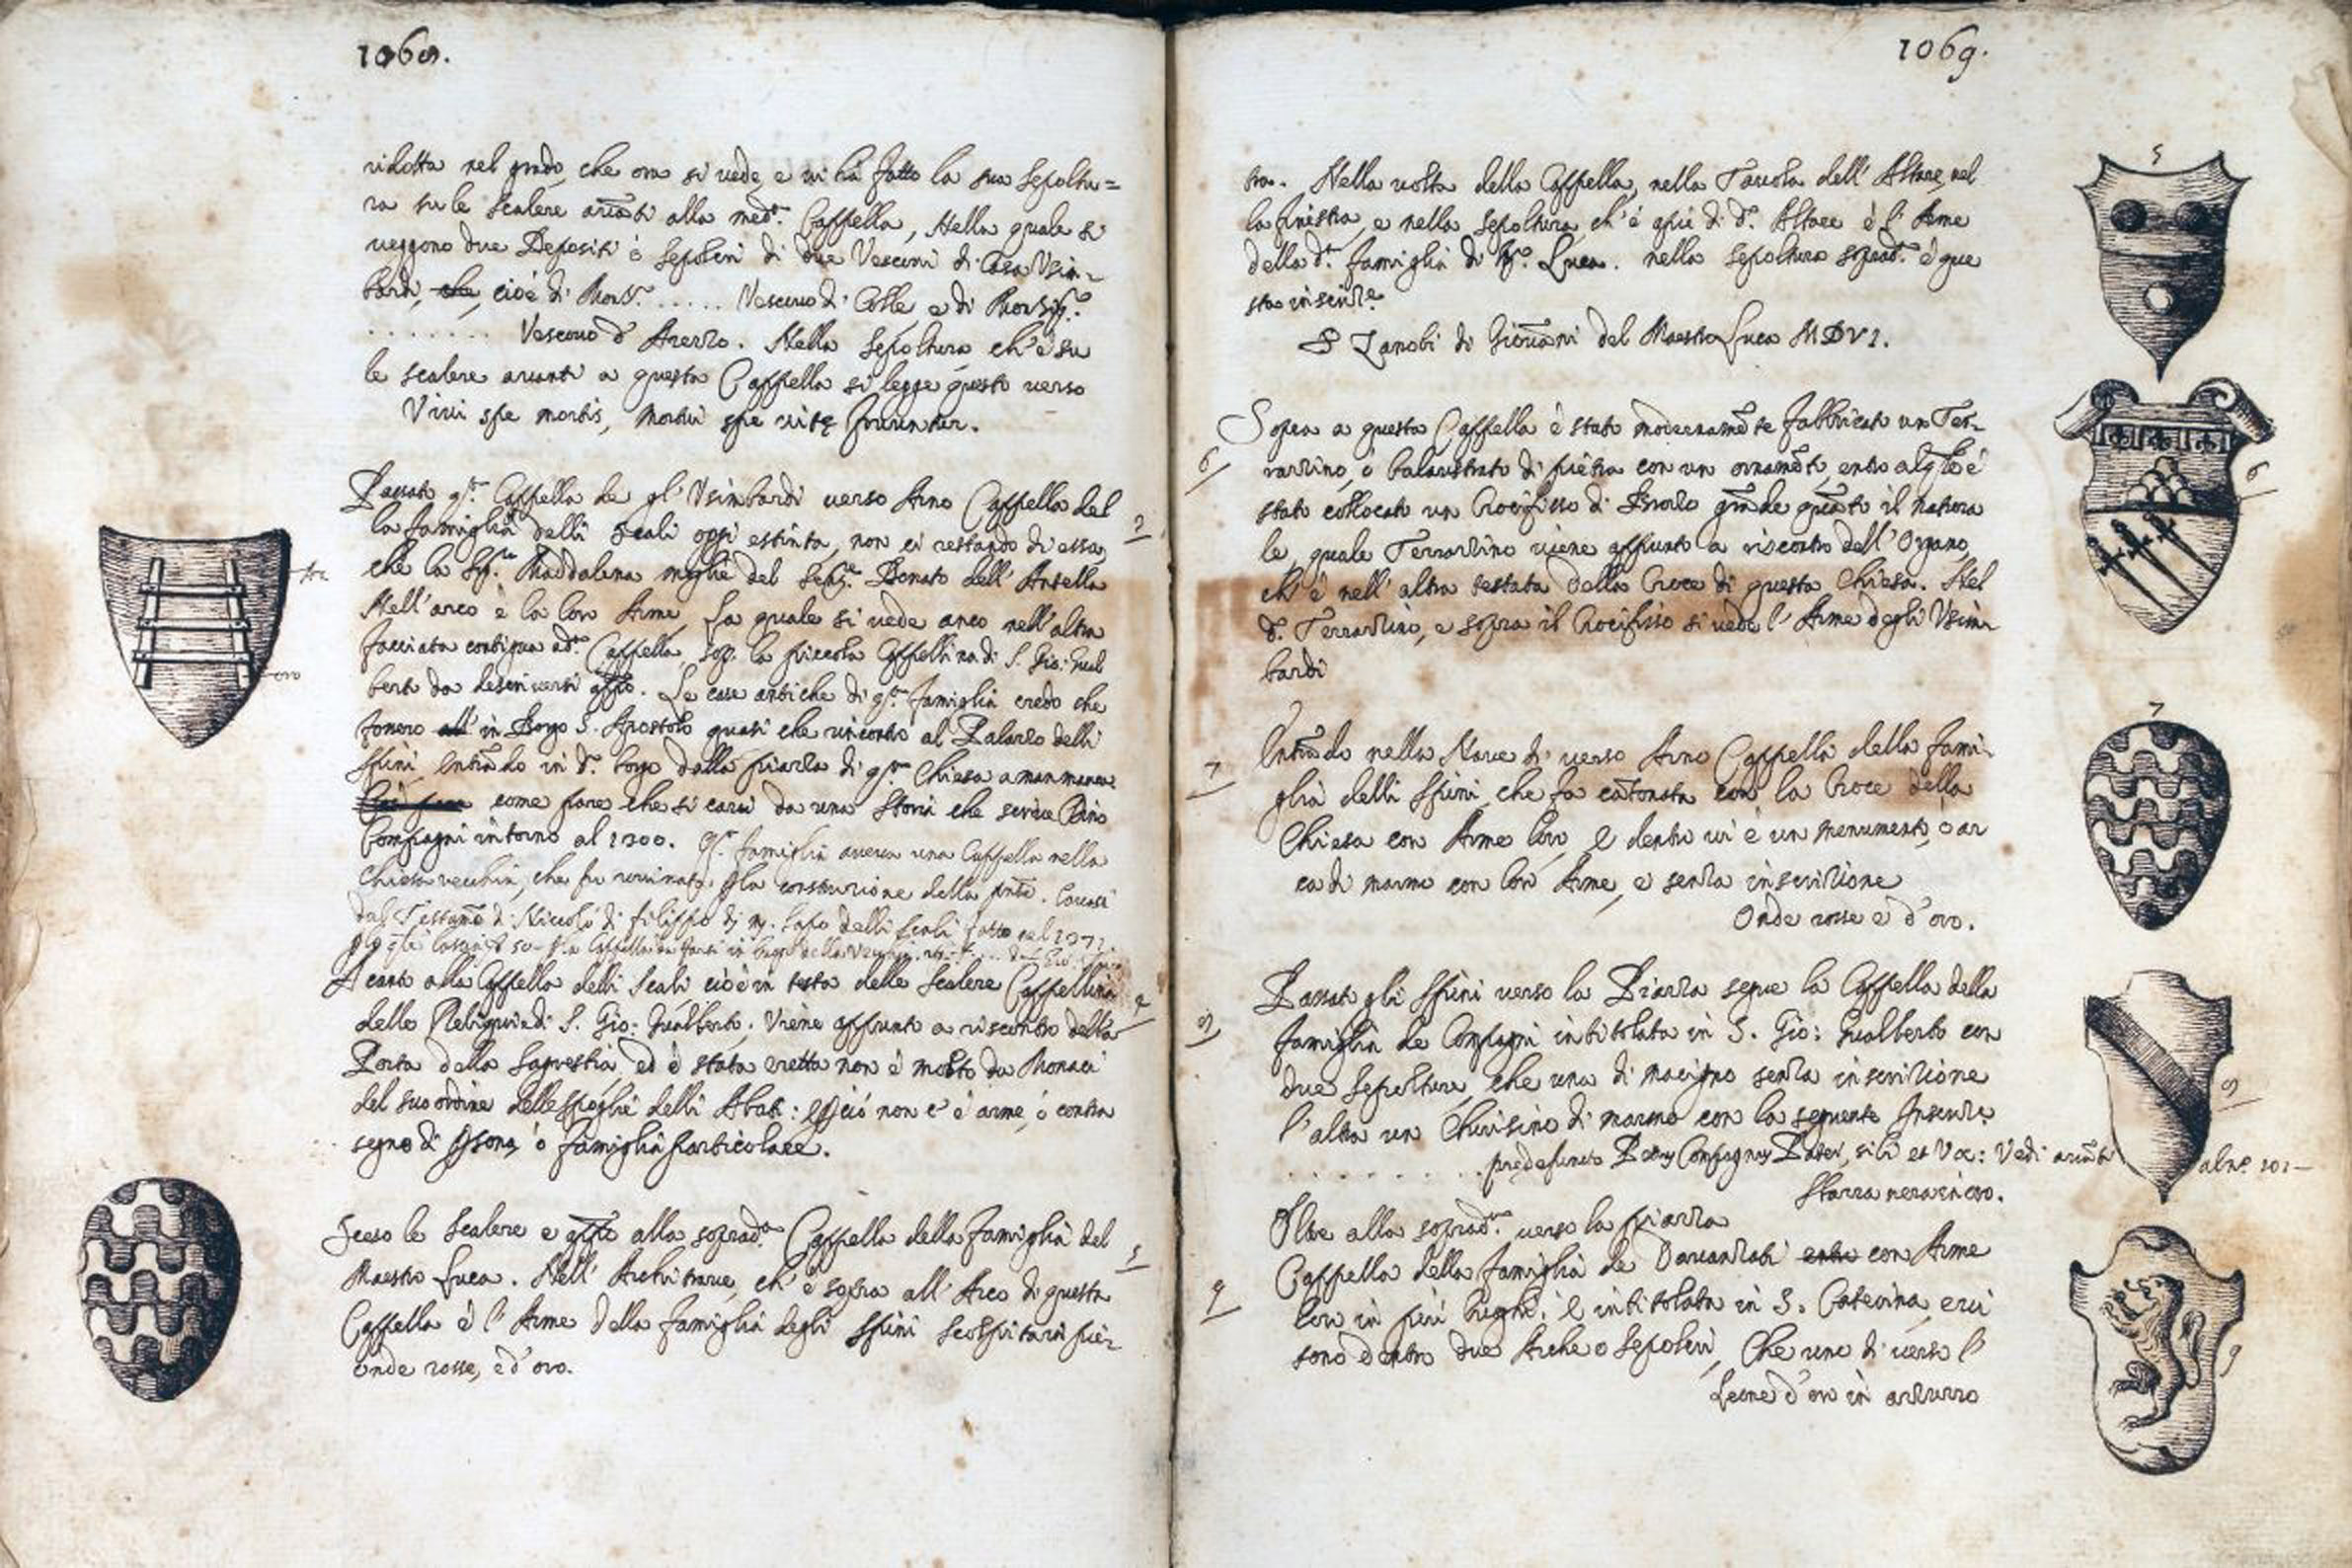 1068.
ridotta nel grado, che ora si vede, e vi ha fatto la sua sepoltu=
ra su le scalere avãti alla med.ª Cappella, Nella quale si
veggono due Depositi ò sepolcri di due Vescovi di Casa Vsim-
bardi, che, cioè di Mons.r ..... Vescovo di Colle, e di Monsig.r
........ Vescovo d'Arezzo. Nella sepoltura ch'è su
le scalere avanti a questa Cappella si legge questo verso
Vivi spe mortis, mortui spe vitę fruuntur.
Passato q.ta Cappella de gl'Vsimbardi verso Arno Cappella del
la famiglia delli Scali oggi estinta, non ci restando di essa,
che la Sig.ra Maddalena moglie del Sen.re Donato dell'Antella
Nell'arco è la loro Arme, La quale si vede anco nell'altra
facciata contigua a d.ta Cappella, sop.ª la piccola Cappellina di S. Gio: Gual
berto da descriversi app.o. Le case antiche di q.ta famiglia credo che
fossero all' in Borgo S. Apostolo quasi che rincontro al Palazzo delli
Spini entrãdo in d.º borgo dalla piazza di q.ta Chiesa a man manca
come pare che si cavi da una Storia che scrive Dino
Compagni intorno al 1300. Q.ta famiglia aveva una Cappella nella
Chiesa vecchia, che fu rovinata p la costruzione della pñte. Cavasi
dal Testam.to di Niccolò di Filippo di m. Lapo delli Scali fatto nel
A canto alla Cappella delli Scali cioè in testa delle scalere Cappellina
delle Reliquie di S. Gio: Gualberto. Viene appunto a riscontro della
Porta della Sagrestia, ed è stata eretta non è molto da Monaci
del suo ordine delle spoglie delli Abati: e p ciò non c'è arme, ò contra
segno di psona, ò famiglia particolare.
Sceso le scalere e app.to alla soprad.ta Cappella della famiglia del
Maestro Luca. Nell'Architrave, ch'è sopra all'Arco di questa
Cappella è l'Arme della famiglia degli Spini scolpita in pie-
onde rosse, e d'oro.
oro
3
4
5
1069.
tra. Nella volta della Cappella, nella Tavola dell'Altare, nel
la finestra, e nella sepoltura, ch'è apiè di d.º Altare è l'Arme
della d.ª famiglia di M.º Luca. nella sepoltura soprad.ª è que
sta inscriz.e
S Zanobi di Giovãni del Maestro Luca MDVI.
Sopra a questa Cappella è stato modernamẽte fabbricato un Ter-
razzino, ò balaustrato di pietra con un ornamẽto, entro al q̃le è
stato collocato un Crocifisso di Bronzo grãde quãto il natura
le, quale Terrazzino viene appunto a riscontro dell'Organo,
ch'è nell'altra testata della Croce di questa Chiesa. Nel
d.º Terrazzino, e sopra il Crocifisso si vede l'Arme degli Vsim-
bardi
Entrãdo nella Nave di verso Arno Cappella della fami-
glia delli Spini che fa cãtonata con la Croce della
Chiesa con Arme loro, e dentro vi è un monumento, ò ar
ca di marmo con loro Arme, e senza inscrizione
Onde rosse e d'oro.
Passato gli Spini verso la Piazza segue la Cappella della
famiglia de Compagni intitolata in S. Gio: Gualberto con
due sepolture, che una di macigno senza inscrizione
l'altra un Chiusino di marmo con la seguente Inscriz.e
Vedi avãti
al n.º 101
Sbarra nera in oro.
Oltre alla soprad.ª verso la piazza
Cappella della famiglia de Davanzati con Arme
loro in più luoghi; è intitolata in S. Caterina, e vi
sono dentro due Arche o sepolcri, Che uno di verso l'
Leone d'oro in azzurro
5
6
6
7
7
8
8
9
9